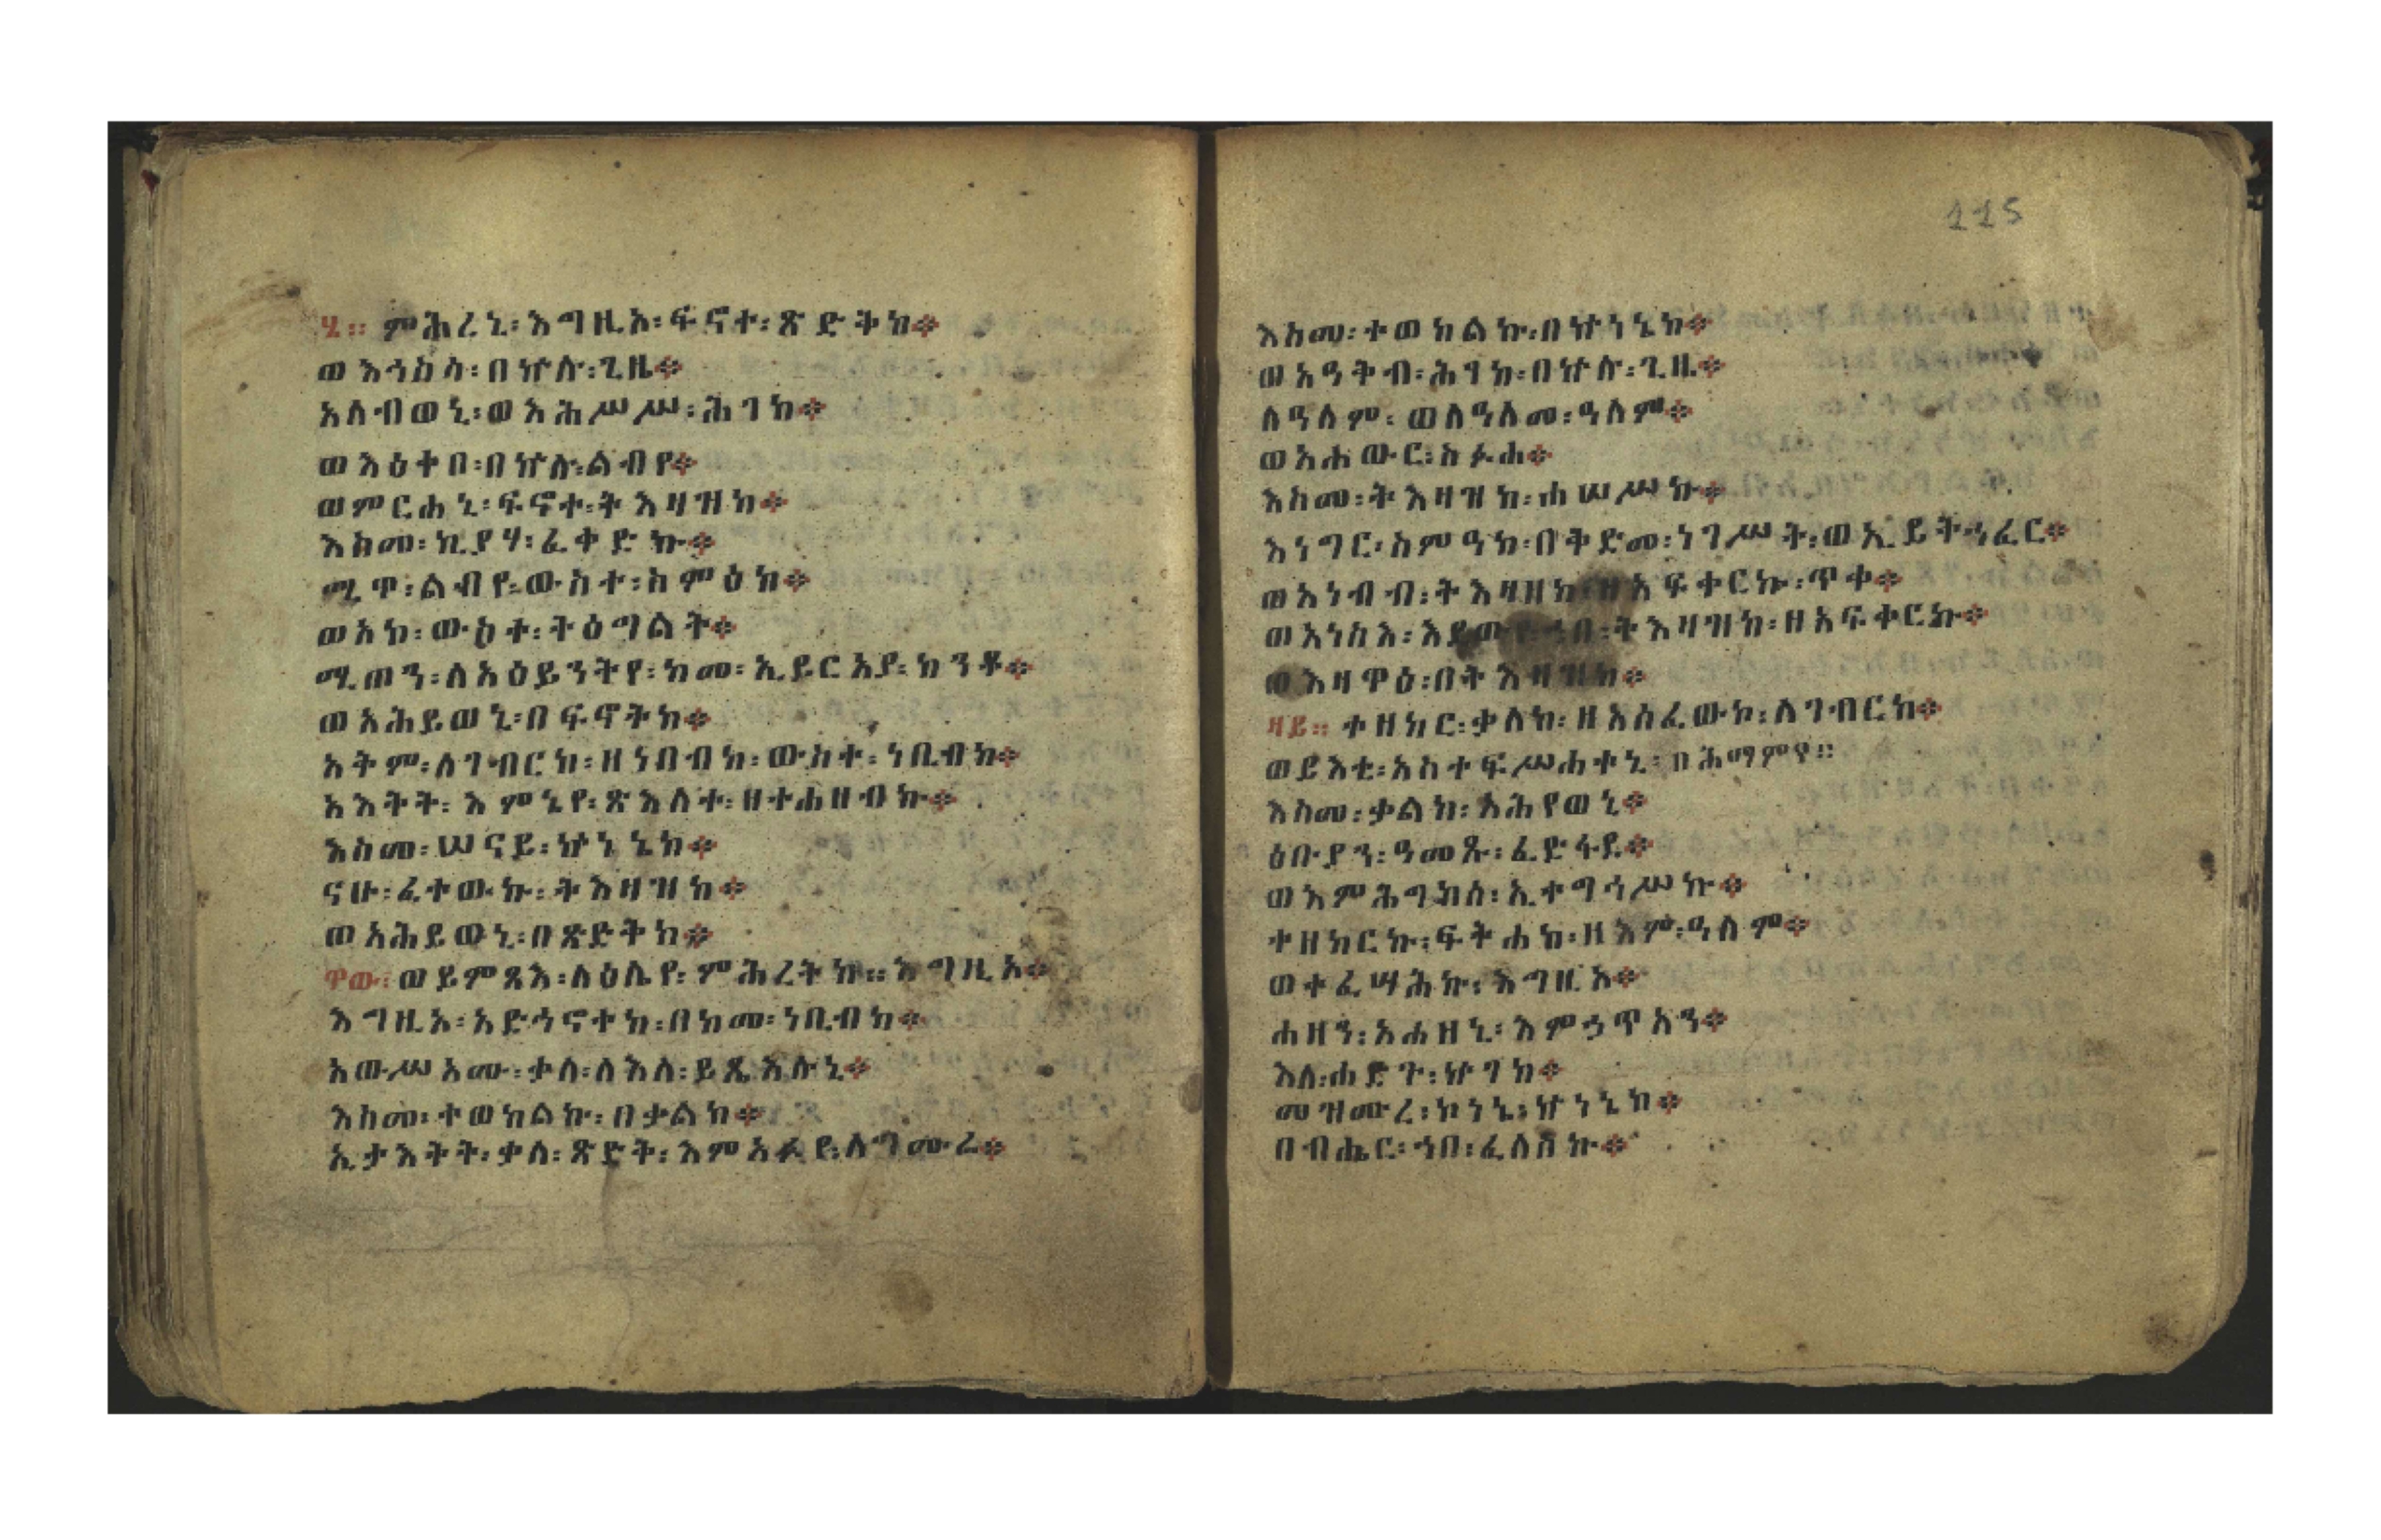 ሄ። ምሕረኒ፡እግዚኦ፡ፍኖተ፡ጽድትከ፨
ወእኅሥሣ፡በኵሉ፡ጊዜ፨
አለብወኒ፡ወእሕሥሥ፡ሕገከ፨
ወእዕቀበ፡በኵሉ፡ልብየ፨
ወምርሐኒ፡ፍኖተ፡ትእዛዝከ፨
እስመ፡ኪያሃ፡ፈቀድኩ፨
ሚጥ፡ልብየ፡ውስተ፡ስምዕከ፨
ወአኮ፡ውስተ፡ትዕግልት፨
ሚጠን፡ለአዕይንትየ፡ከመ፡ኢይርአያ፡ከንቶ፨
ወአሕይወኒ፡በፍኖትከ፨
አትም፡ለገብርከ፡ዘነበብከ፡ውስተ፡ነቢብከ፨
አእትት፡እምኔየ፡ጽእለተ፡ዘተሐዘብኩ፨
እስመ፡ሠናይ፡ኵነኔከ፨
ናሁ፡ፈተውኩ፡ትእዛዝከ፨
ወአሕይወኒ፡በጽድትከ፨
ዋው፡ወይምጻእ፡ለዕሌየ፡ምሕረትከ።እግዚኦ፨
እግዚኦ፡አድኅኖተከ፡በከመ፡ነቢብከ፨
አውሥአሙ፡ቃለ፡ለእለ፡ይጼእሉኒ፨
እስመ፡ተወከልኩ፡በቃልከ፨
ኢታእትት፡ቃለ፡ጽድት፡እምአፉየ፡ለግሙረ፨
እስመ፡ተወከልኩ፡በኵነኔከ፨
ወአዓቅብ፡ሕገከ፡በኵሉ፡ጊዜ፨
ለዓለም፡ወለዓለመ፡ዓለም፨
ወአሐውር፡ስፉሐ፨
እስመ፡ትእዛዝከ፡ሐሠሥኩ፨
እነግር፡ስምዓከ፡በቅድመ፡ነገሥት፡ወኢይትኅፈር፨
ወአነብብ፡ትእዛዘከ፡ዘአፍቀርኩ፡ጥቀ፨
ወአነስእ፡እደውየ፡ኀበ፡ትእዛዝከ፡ዘአፍቀርኩ፨
ወእዛዋዕ፡በትእዛዝከ፨
ዛይ። ተዘከር፡ቃለከ፡ዘአሰፈውኮ፡ለገብርከ፨
ወይእቲ፡አስተፍሥሐተኒ፡በሕማምየ።
እስመ፡ቃልከ፡አሕየወኒ፨
ዕቡያን፡ዓመጹ፡ፈድፋደ፨
ወእምሕግከሰ፡ኢተግኅሥኩ፨
ተዘከርኩ፡ፍትሐከ፡ዘእም፡ዓለም፨
ወተፈሣሕኩ፡እግዚኦ፨
ሐዘን፡አሐዘኒ፡እምኃጥአን፨
እለ፡ሐድጉ፡ሕገከ፨
መዝሙረ፡ኮነኒ፡ኵነኔከ፨
በብሔር፡ኀበ፡ፈለስኩ፨
115